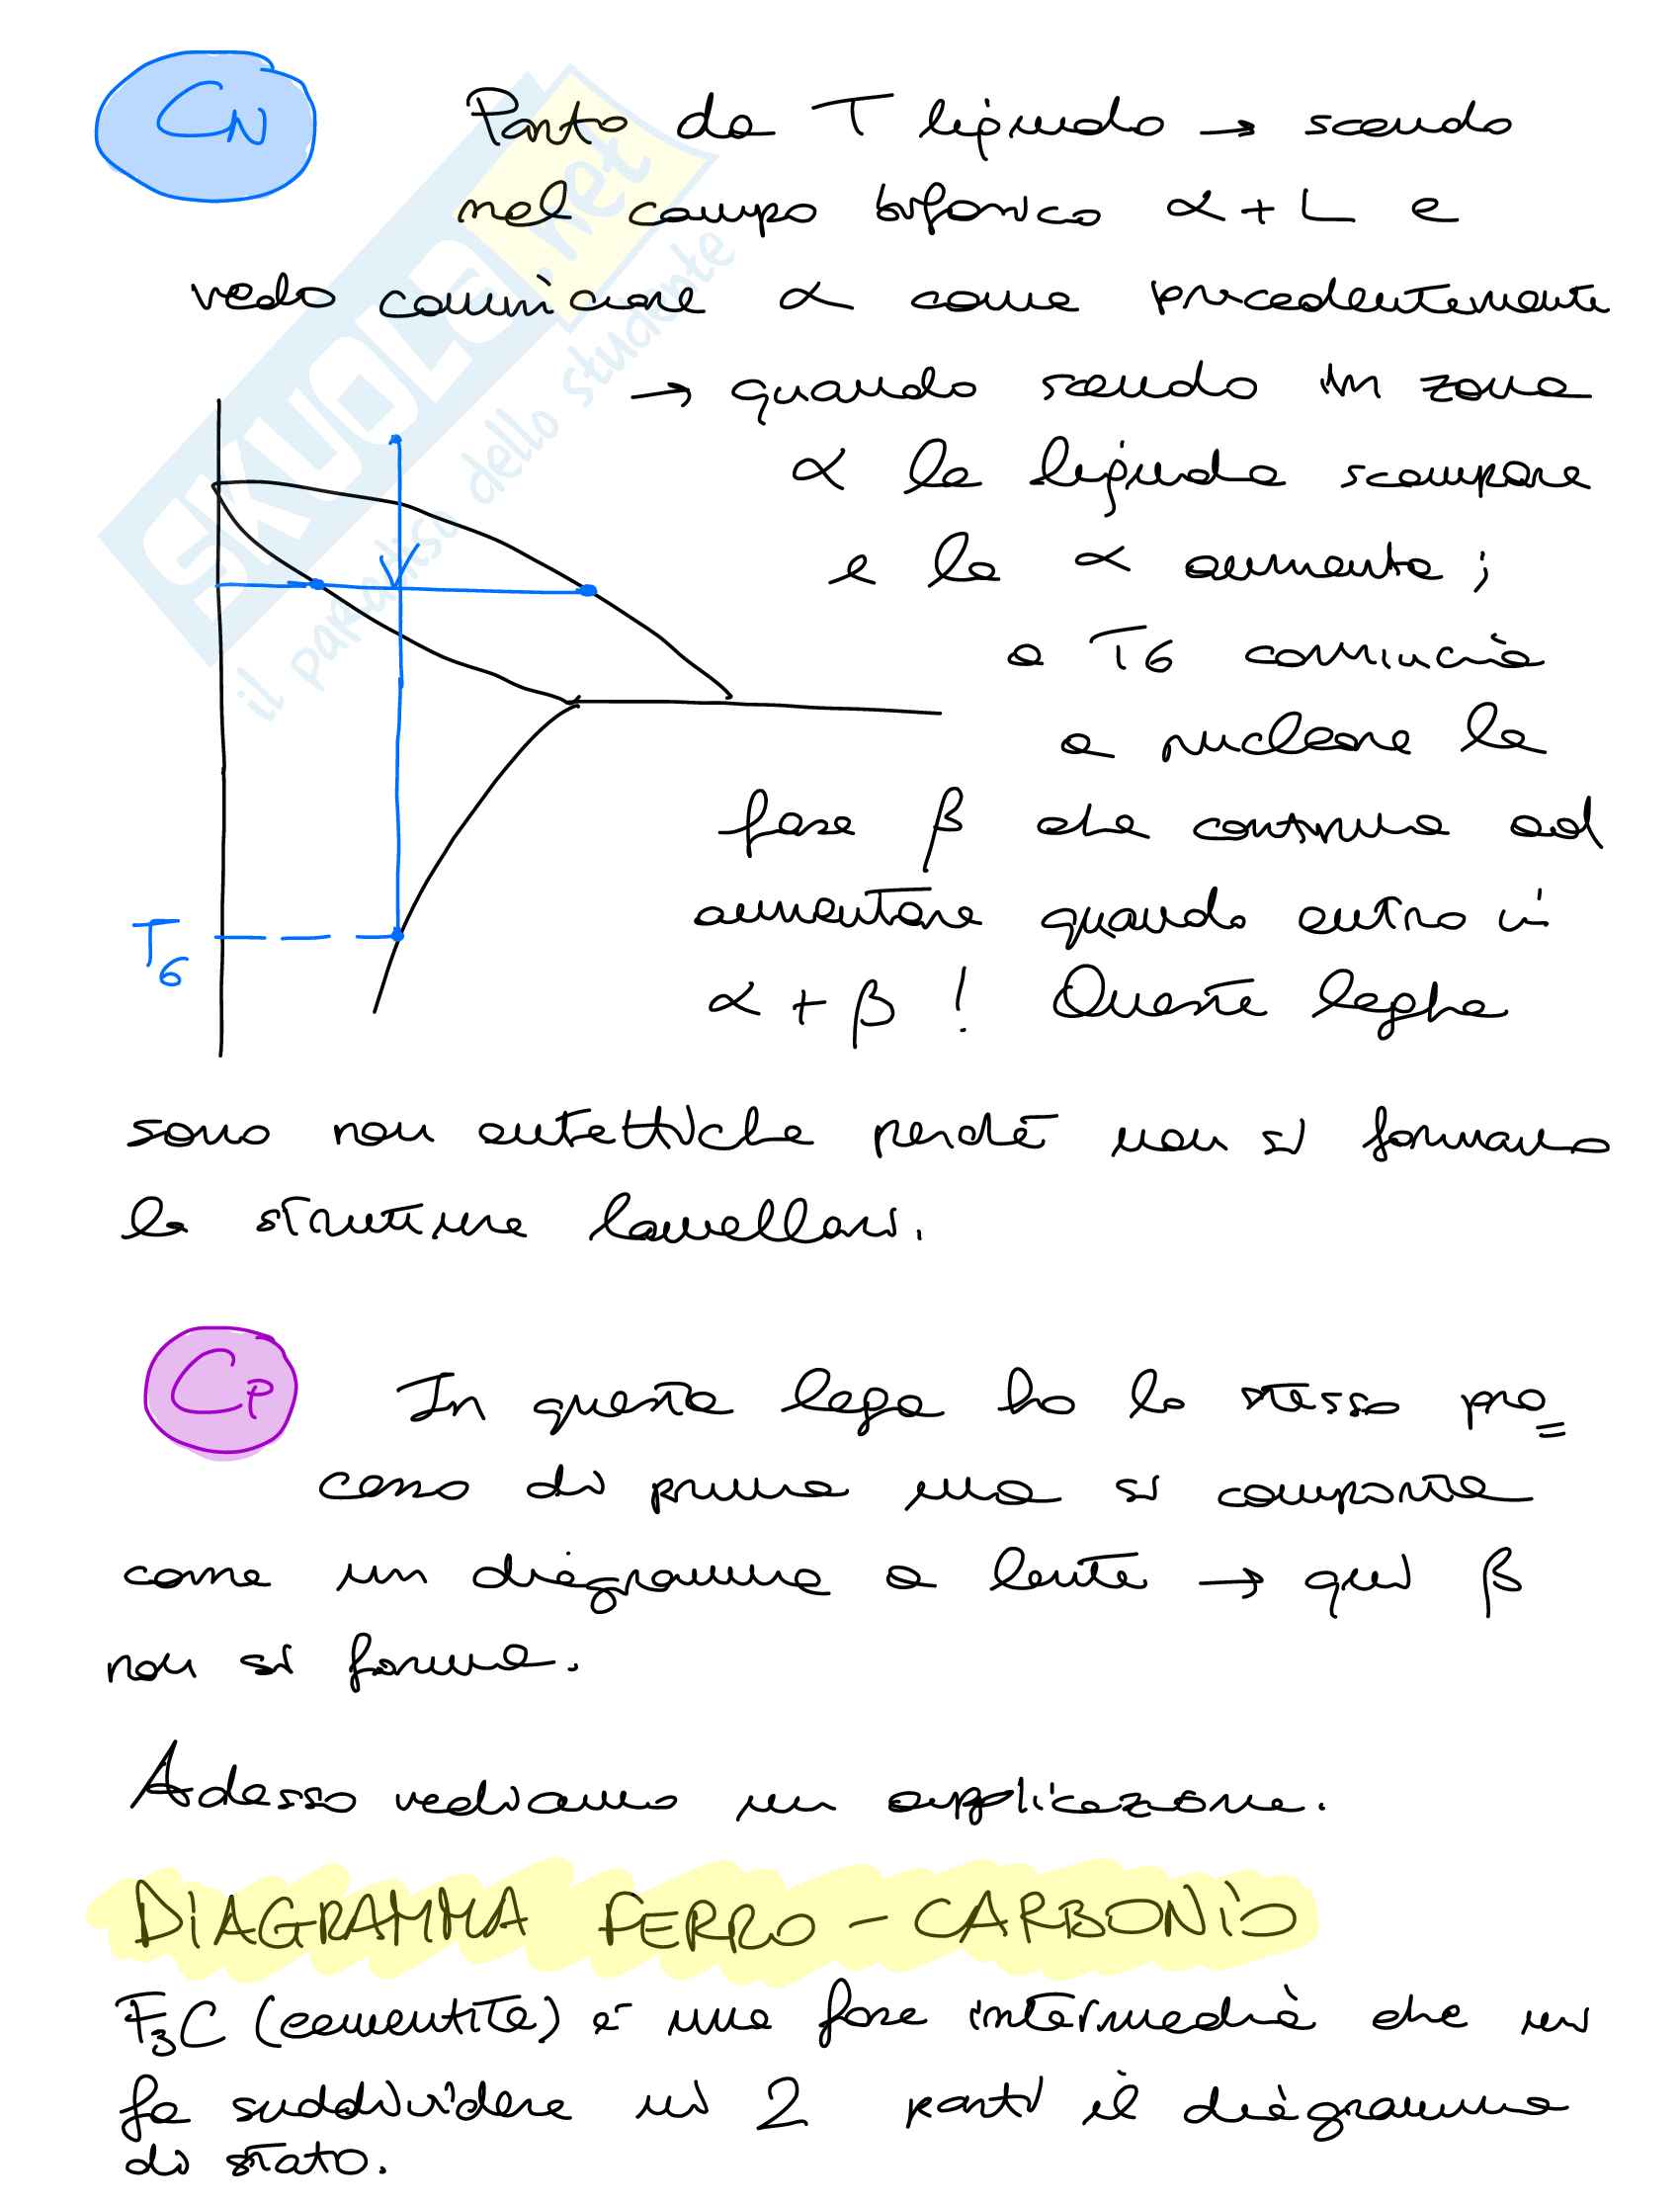 CN
Parto da T liquido → scendo
nel campo bifasico α + L e
vedo cominciare α come precedentemente
→ quando scendo in zona
α la liquida scompare
e la α aumenta ;
a T6 comincia
a nucleare la
fase β che continua ad
aumentare quando entro in
α + β ! Queste leghe
T6
sono non eutettiche perché non si formano
le strutture lamellari.
CP
In questa lega ho lo stesso pro=
cesso di prima ma si comporta
come un diagramma a lente → qui β
non si forma.
Adesso vediamo un applicazione.
DIAGRAMMA FERRO - CARBONIO
F3C (cementite) è una fase intermedia che mi
fa suddividere in 2 parti il diagramma
di stato.
SKUOLA.net
il paradiso dello studente